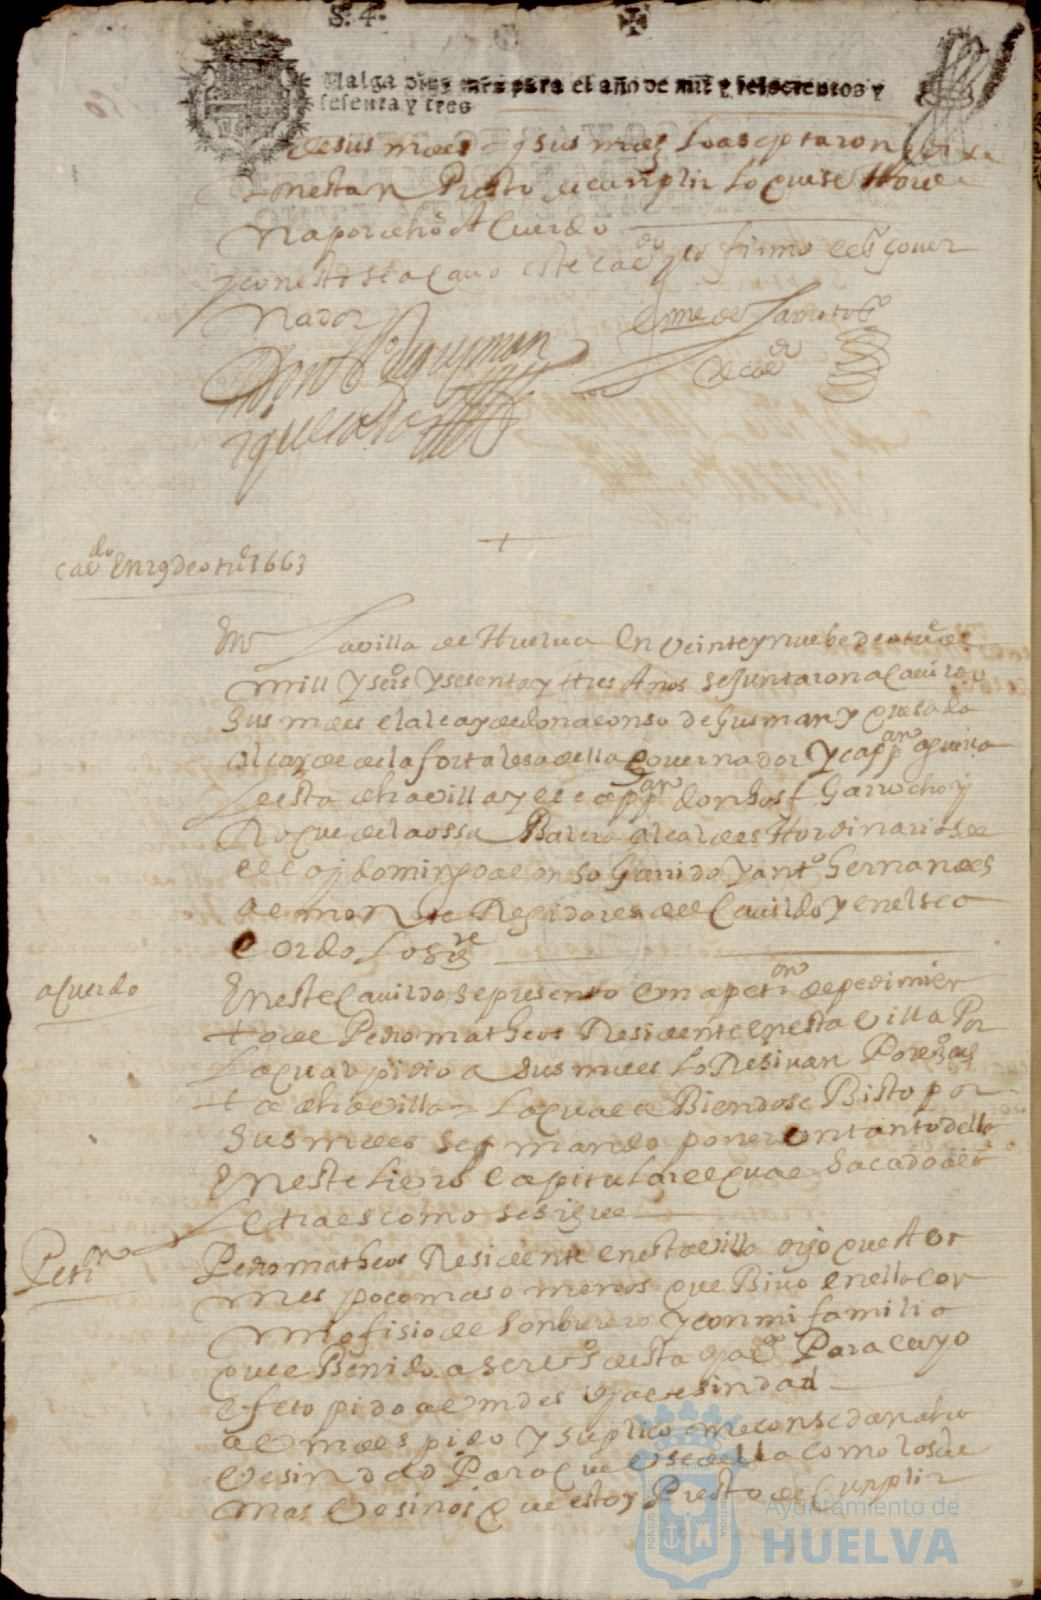 S. 4.
Valga diez mrs para el año de mil y seiscientos y
sesenta y tres
de sus mdes = y sus mdes lo aseptaron
estan Presto de cunplir lo que se
por dho Acuerdo
y con esto se acavo este cavdo y lo firmo el sr gover
nador
Don Aº de gusman
i quesada
de cavdo
cavdo En 29 de otue 1663
En La villa de Huelva En veinte y nuebe de otue de
mill y seisº y sesenta y tres Años se Juntaron a Cavildo
Sus mdes el alcayde don alonso de Gusman y quesada
alcayde de la fortalesa della governador y cappan a guerra
de esta dha villa y el cappan don Josf Garrocho y
Roque de la ossa Balero alcaldes Hordinarios de
ella y domingo alonso Garrido y antº Hernandes
de Regidores del Cavildo y en el se a
cordo lo sigte
acuerdo
En este Cavildo se presento una petion de pedimien
to de Pedro matheos Residente en esta villa Por
La qual pidio a Sus mdes lo Resivan Por vº
ta dha villa = La qual a Biendose Bisto por
Sus mdes se mando poner un tanto della
En este Libro Capitular el qual Sacado a la
Letra es como se sigue
Petion
Pedro matheos Residente en esta villa digo que A dos
mes poco mas o menos que Bivo en ella con
mi ofisio de Sonbrero y con mi familia
que e Benido a ser vº desta Para cuyo
efeto pido a Vmdes vesindad
a Vmdes pido y suplico me consedan dha
Vesindad Para que use della como los de
mas Vesinos que estoy Presto de Cunplir
Ayuntamiento de
HUELVA